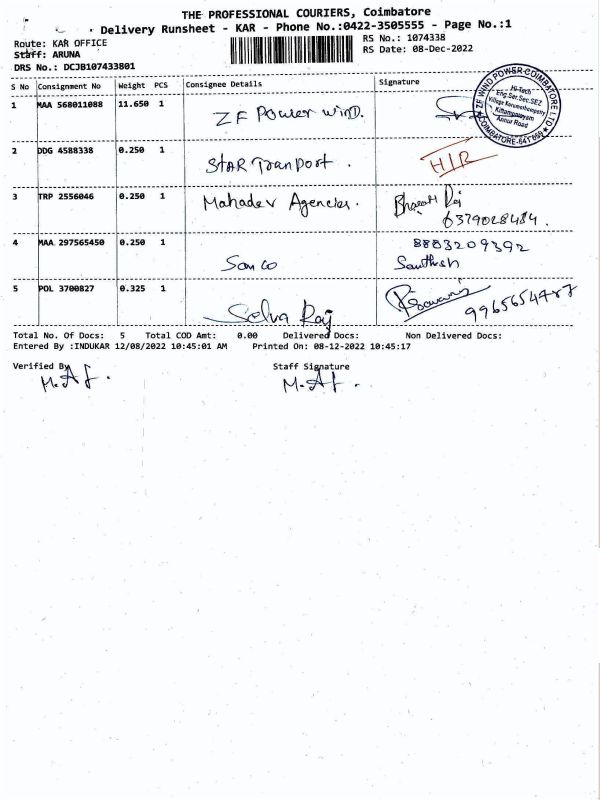 THE PROFESSIONAL COURIERS, Coimbatore
Delivery Runsheet - KAR - Phone No.:0422-3505555 - Page No.:1
Route: KAR OFFICE
RS No.: 1074338
Staff: ARUNA
RS Date: 08-Dec-2022
DRS No.: DCJB107433801
S No Consignment No Weight PCS Consignee Details Signature
1 MAA 568011088 11.650 1 ZF Power WinD.
ZF WIND POWER COIMBATORE LTD
Hi-Tech
Eng.Ser.Sec.SEZ
Village Karumathampatty
Kittampalayam
Annur Road
COIMBATORE-641 659
2 DDG 4588338 0.250 1 STAR Tranport . H/R
3 TRP 2556046 0.250 1 Mahadev Agencies. Bharath Raj
6379028484.
4 MAA 297565450 0.250 1 Sanco 8803209392
Santhosh
5 POL 3700827 0.325 1 Selva Raj 9965654787
Total No. Of Docs: 5 Total COD Amt: 0.00 Delivered Docs: Non Delivered Docs:
Entered By :INDUKAR 12/08/2022 10:45:01 AM Printed On: 08-12-2022 10:45:17
Verified By Staff Signature